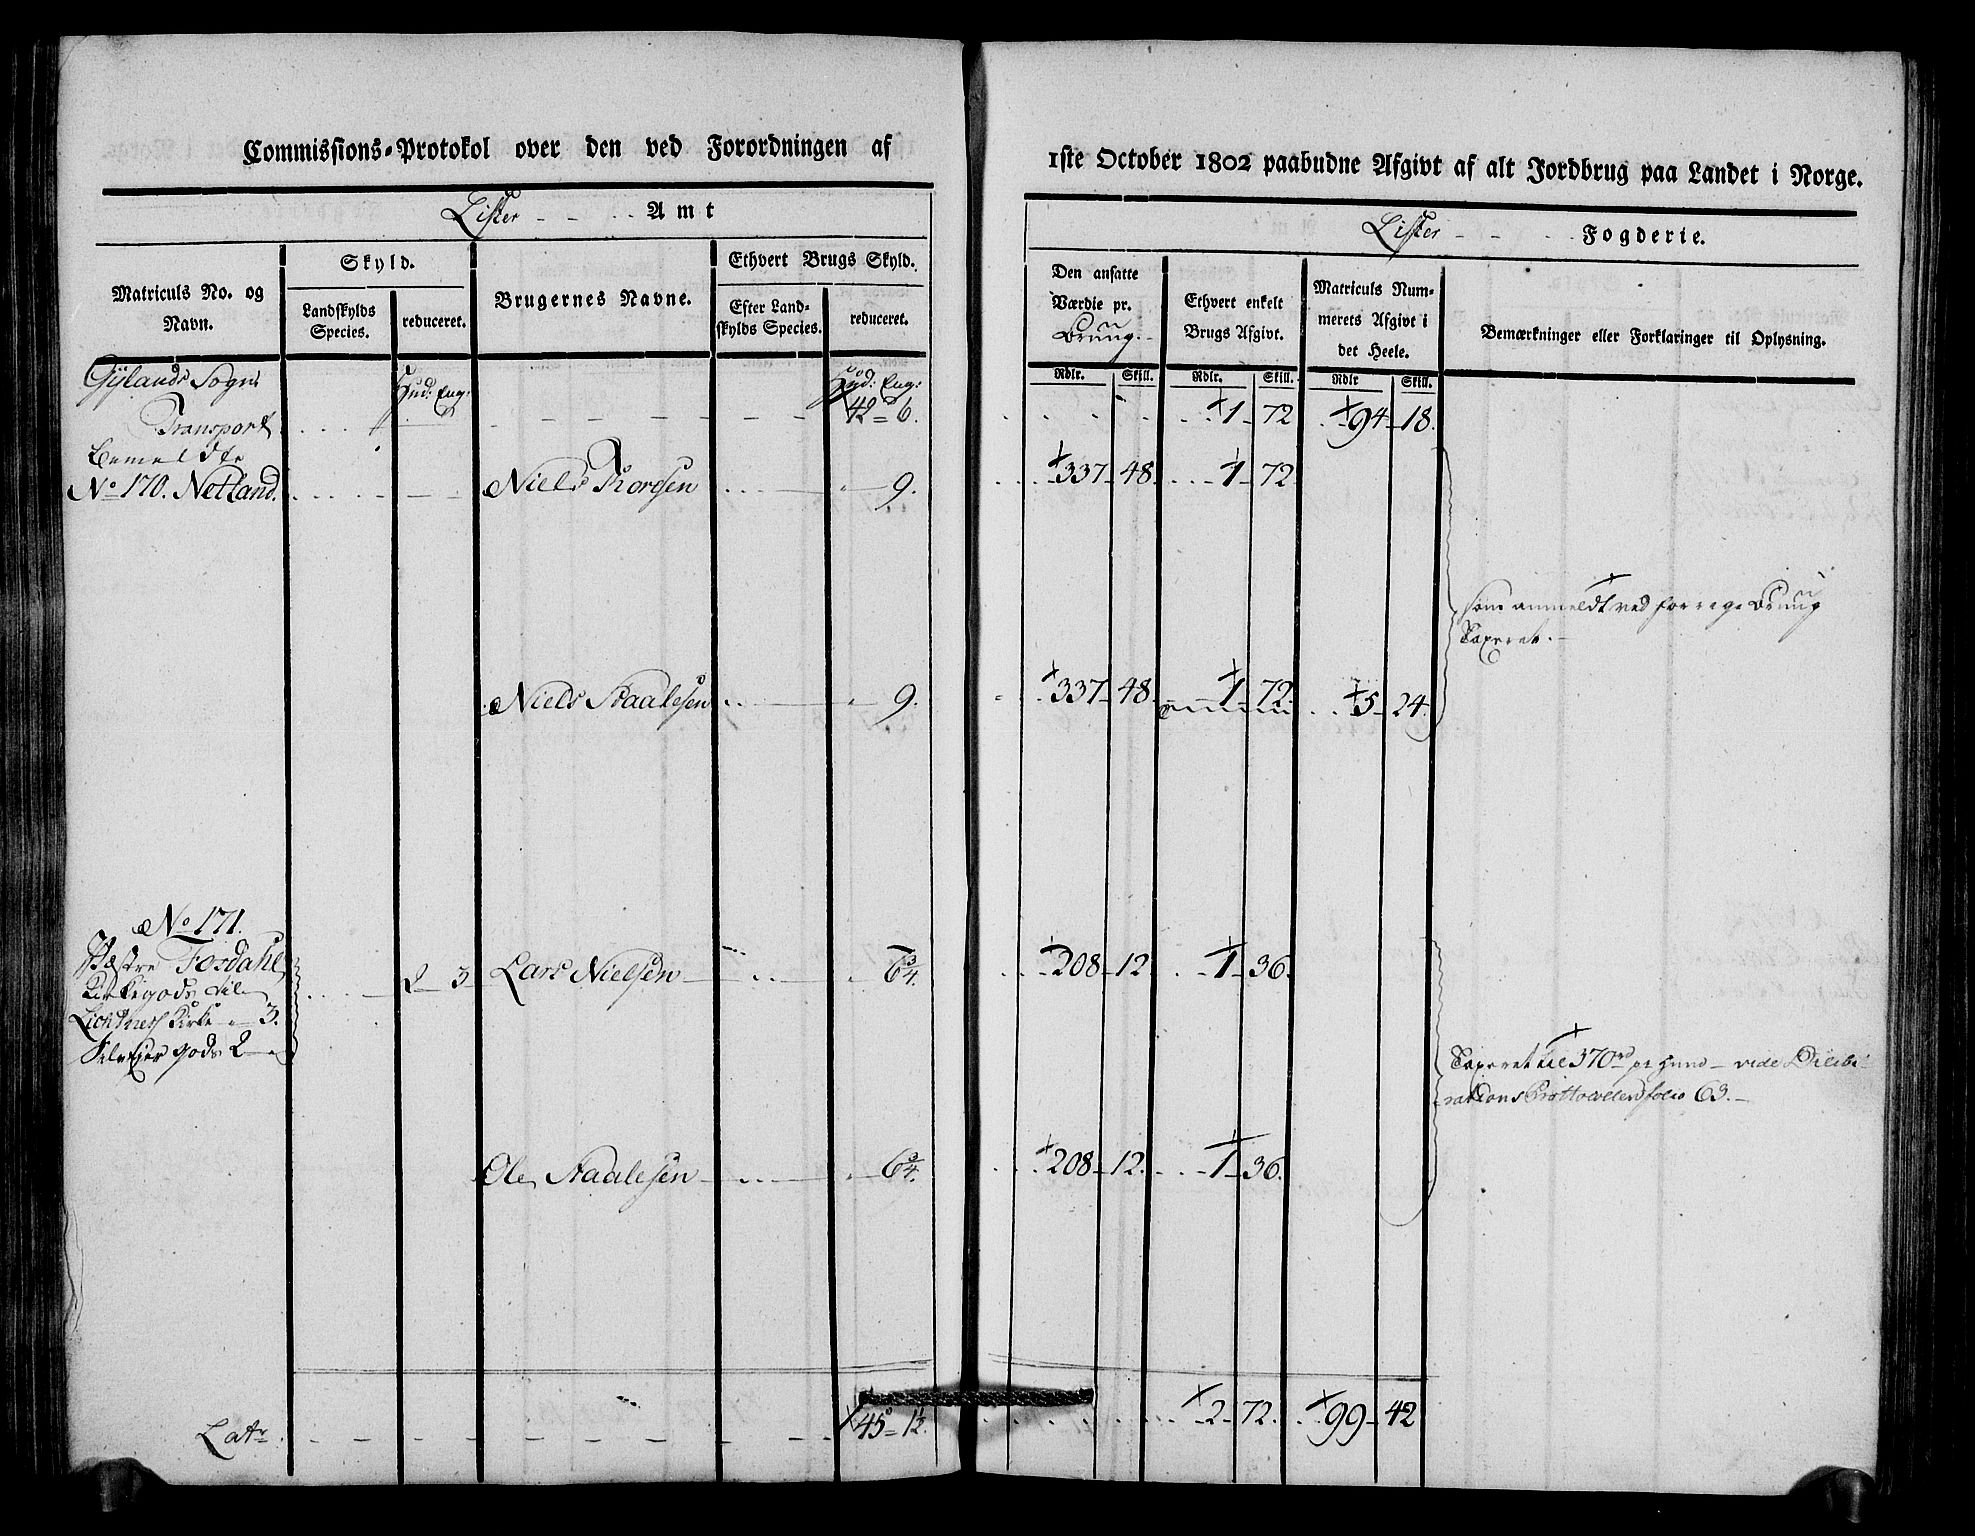 Commissions-Protokol over den ved Forordningen af
Lister Amt
Matriculs No. og Navn.
Skyld.
Landskylds Species.
reduceret.
Brugernes Navne.
Ethvert Brugs Skyld.
Efter Landskylds Species.
reduceret.
Gylands Sogn
Hud: Eng:
Hud: Eng:
Transport
42 = 6.
Bemeldte
No 170. Netland. Niels Tordsen 9.
Niels Staalesen 9.
No 171.
Vestre Fosdahl
2 3 Lars Nielsen 6 3/4.
Kirkegods til
Kirke 3.
gods 2
Ole Staalesen 6 3/4.
Latr. 45 = 1 1/2.
1ste October 1802 paabudne Afgivt af alt Jordbrug paa Landet i Norge.
Lister Fogderie.
Den ansatte Værdie pr. Bruug.
Ethvert enkelt Brugs Afgivt.
Matriculs Nummerets Afgivt i det Heele.
Bemærkninger eller Forklaringer til Oplysning.
Rdlr. Skill. Rdlr. Skill. Rdlr Skill.
1 72 94 18.
337 48 1 72
som anmeldt ved forrige Bruug
Taxeret.
337 48 1 72 5 24
208 12 1 36.
Taxeret til 370 rd pr Huud vide Delibe-
rations Prottocollen folio 63.
208 12. 1 36.
2 72. 99 42